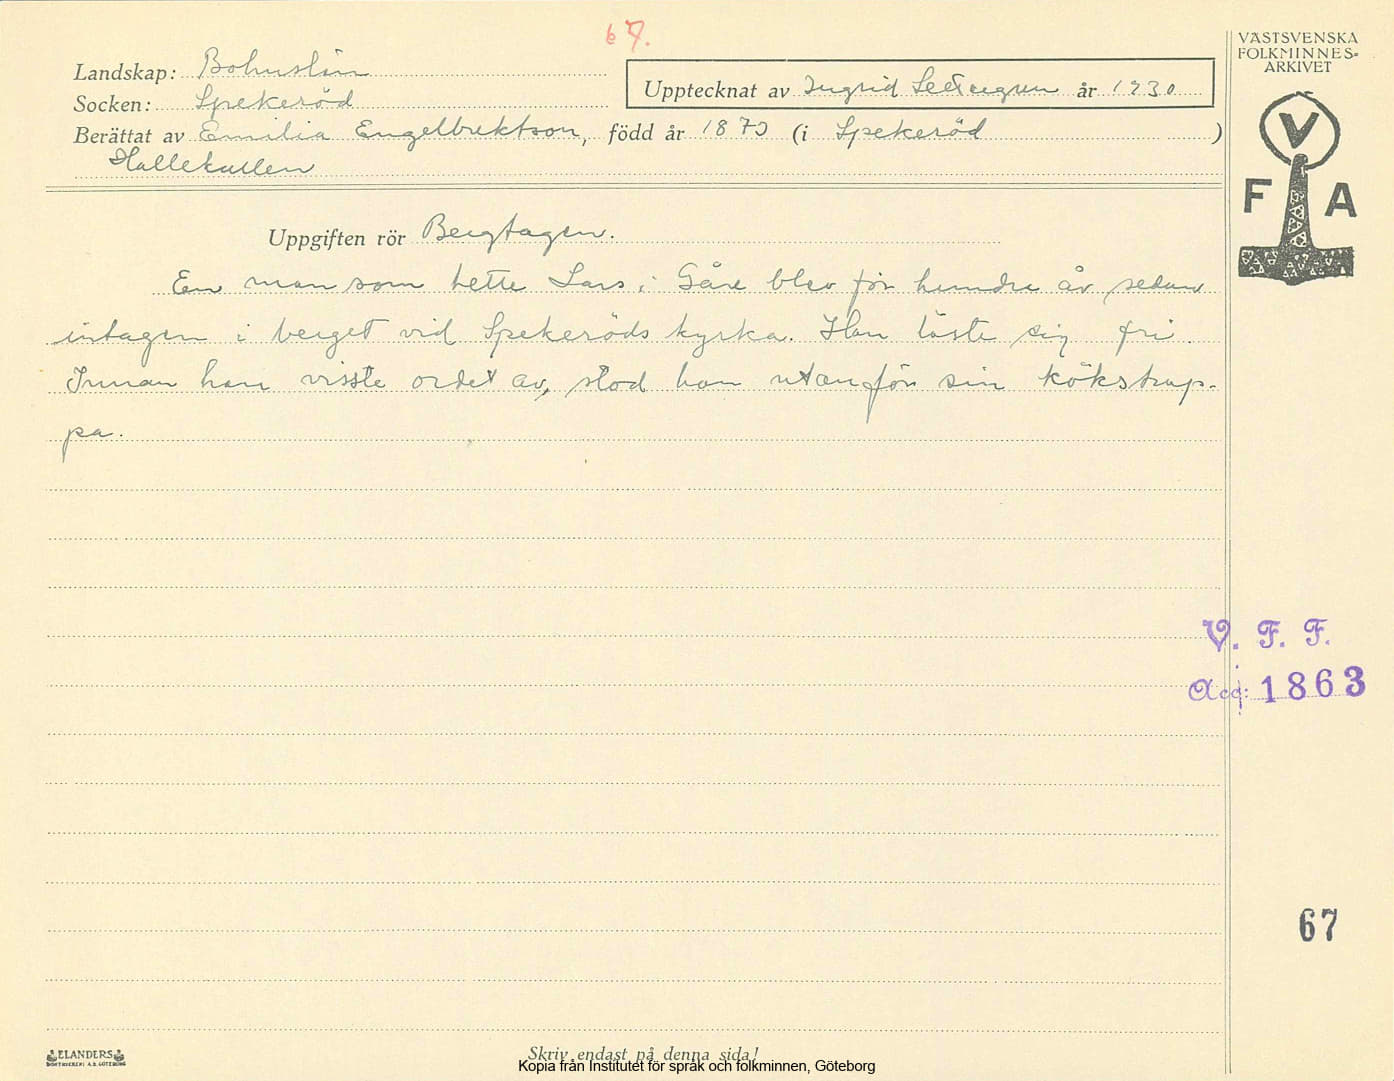 67.
Landskap: Bohuslän
Socken: Spekeröd
Upptecknat av Ingrid år 1930
Berättat av Emilia Engelbrektson, född år 1870 (i Spekeröd )
Hallekullen
VÄSTSVENSKA
FOLKMINNES-
ARKIVET
V
F A
Uppgiften rör Bergtagen.
En man som hette Lars i Gåre blev för hundra år sedan
intagen i berget vid Spekeröds kyrka. Han löste sig fri.
Innan han visste ordet av, stod han utanför sin kökstrap-
pa.
V. F. F.
Acc: 1863
67
ELANDERS
BOKTRYCKERI A.B. GÖTEBORG
Skriv endast på denna sida!
Kopia från Institutet för språk och folkminnen, Göteborg